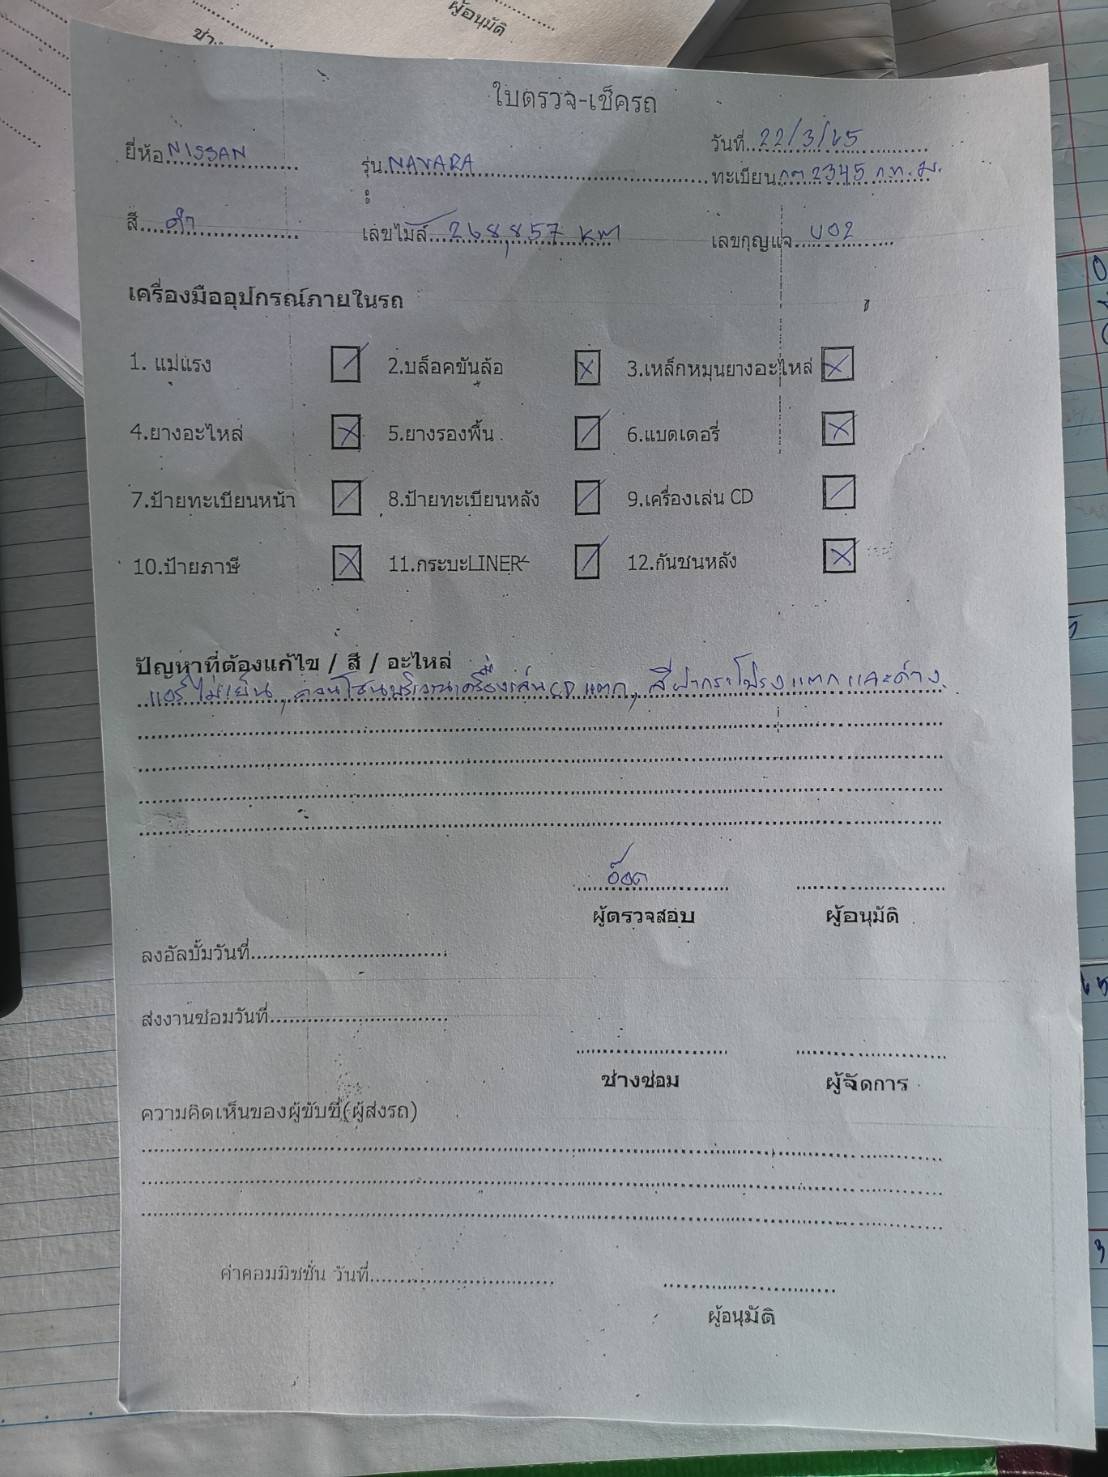 ผู้อนุมัติ
ใบตรวจ-เช็ครถ
วันที่..22/3/65
ยี่ห้อ NISSAN รุ่น NAVARA ทะเบียน กต 2345 ก.ท.ม.
สี ดำ เลขไมล์ 268,857 KM เลขกุญแจ U02
เครื่องมืออุปกรณ์ภายในรถ
1. แม่แรง / 2.บล็อคขันล้อ X 3.เหล็กหมุนยางอะไหล่ X
4.ยางอะไหล่ X 5.ยางรองพื้น / 6.แบตเตอรี่ X
7.ป้ายทะเบียนหน้า / 8.ป้ายทะเบียนหลัง / 9.เครื่องเล่น CD /
10.ป้ายภาษี X 11.กระบะLINER / 12.กันชนหลัง X
ปัญหาที่ต้องแก้ไข / สี / อะไหล่
แอร์ไม่เย็น, คอนโซนบริเวณเครื่องเล่น CD แตก, สีฝากระโปรงแตกและด่าง
อ๊อด
ผู้ตรวจสอบ ผู้อนุมัติ
ลงอัลบั้มวันที่
ส่งงานซ่อมวันที่
ช่างซ่อม ผู้จัดการ
ความคิดเห็นของผู้ขับขี่(ผู้ส่งรถ)
ค่าคอมมิชชั่น วันที่
ผู้อนุมัติ